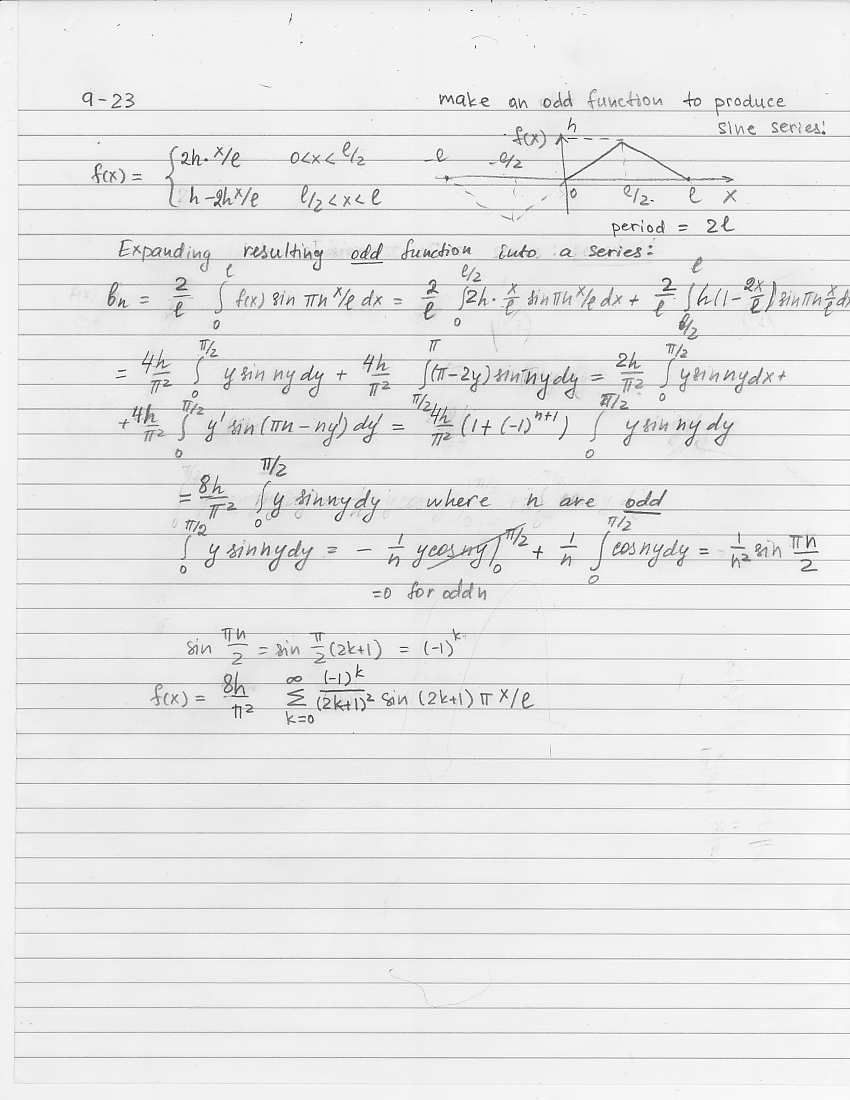 9-23
make an odd function to produce
sine series:
f(x) = { 2h·x/ℓ 0<x<ℓ/2
h-2hx/ℓ ℓ/2<x<ℓ
f(x) h
-ℓ -ℓ/2 0 ℓ/2 ℓ x
period = 2ℓ
Expanding resulting odd function into a series:
bₙ = 2/ℓ ∫₀^ℓ f(x) sin πn x/ℓ dx = 2/ℓ ∫₀^{ℓ/2} 2h·x/ℓ sin πn x/ℓ dx + 2/ℓ ∫_{ℓ/2}^ℓ h(1-2x/ℓ) sin πn x/ℓ dx
= 4h/π² ∫₀^{π/2} y sin ny dy + 4h/π² ∫_{π/2}^π (π-2y) sin ny dy = 2h/π² ∫₀^{π/2} y sin ny dx +
+ 4h/π² ∫₀^{π/2} y' sin(πn-ny') dy' = 4h/π² (1+(-1)^{n+1}) ∫₀^{π/2} y sin ny dy
= 8h/π² ∫₀^{π/2} y sin ny dy where n are odd
∫₀^{π/2} y sin ny dy = - 1/n y cos ny |₀^{π/2} + 1/n ∫₀^{π/2} cos ny dy = 1/n² sin πn/2
=0 for odd n
sin πn/2 = sin π/2 (2k+1) = (-1)^k
f(x) = 8h/π² ∑_{k=0}^∞ (-1)^k/(2k+1)² sin (2k+1) π x/ℓ